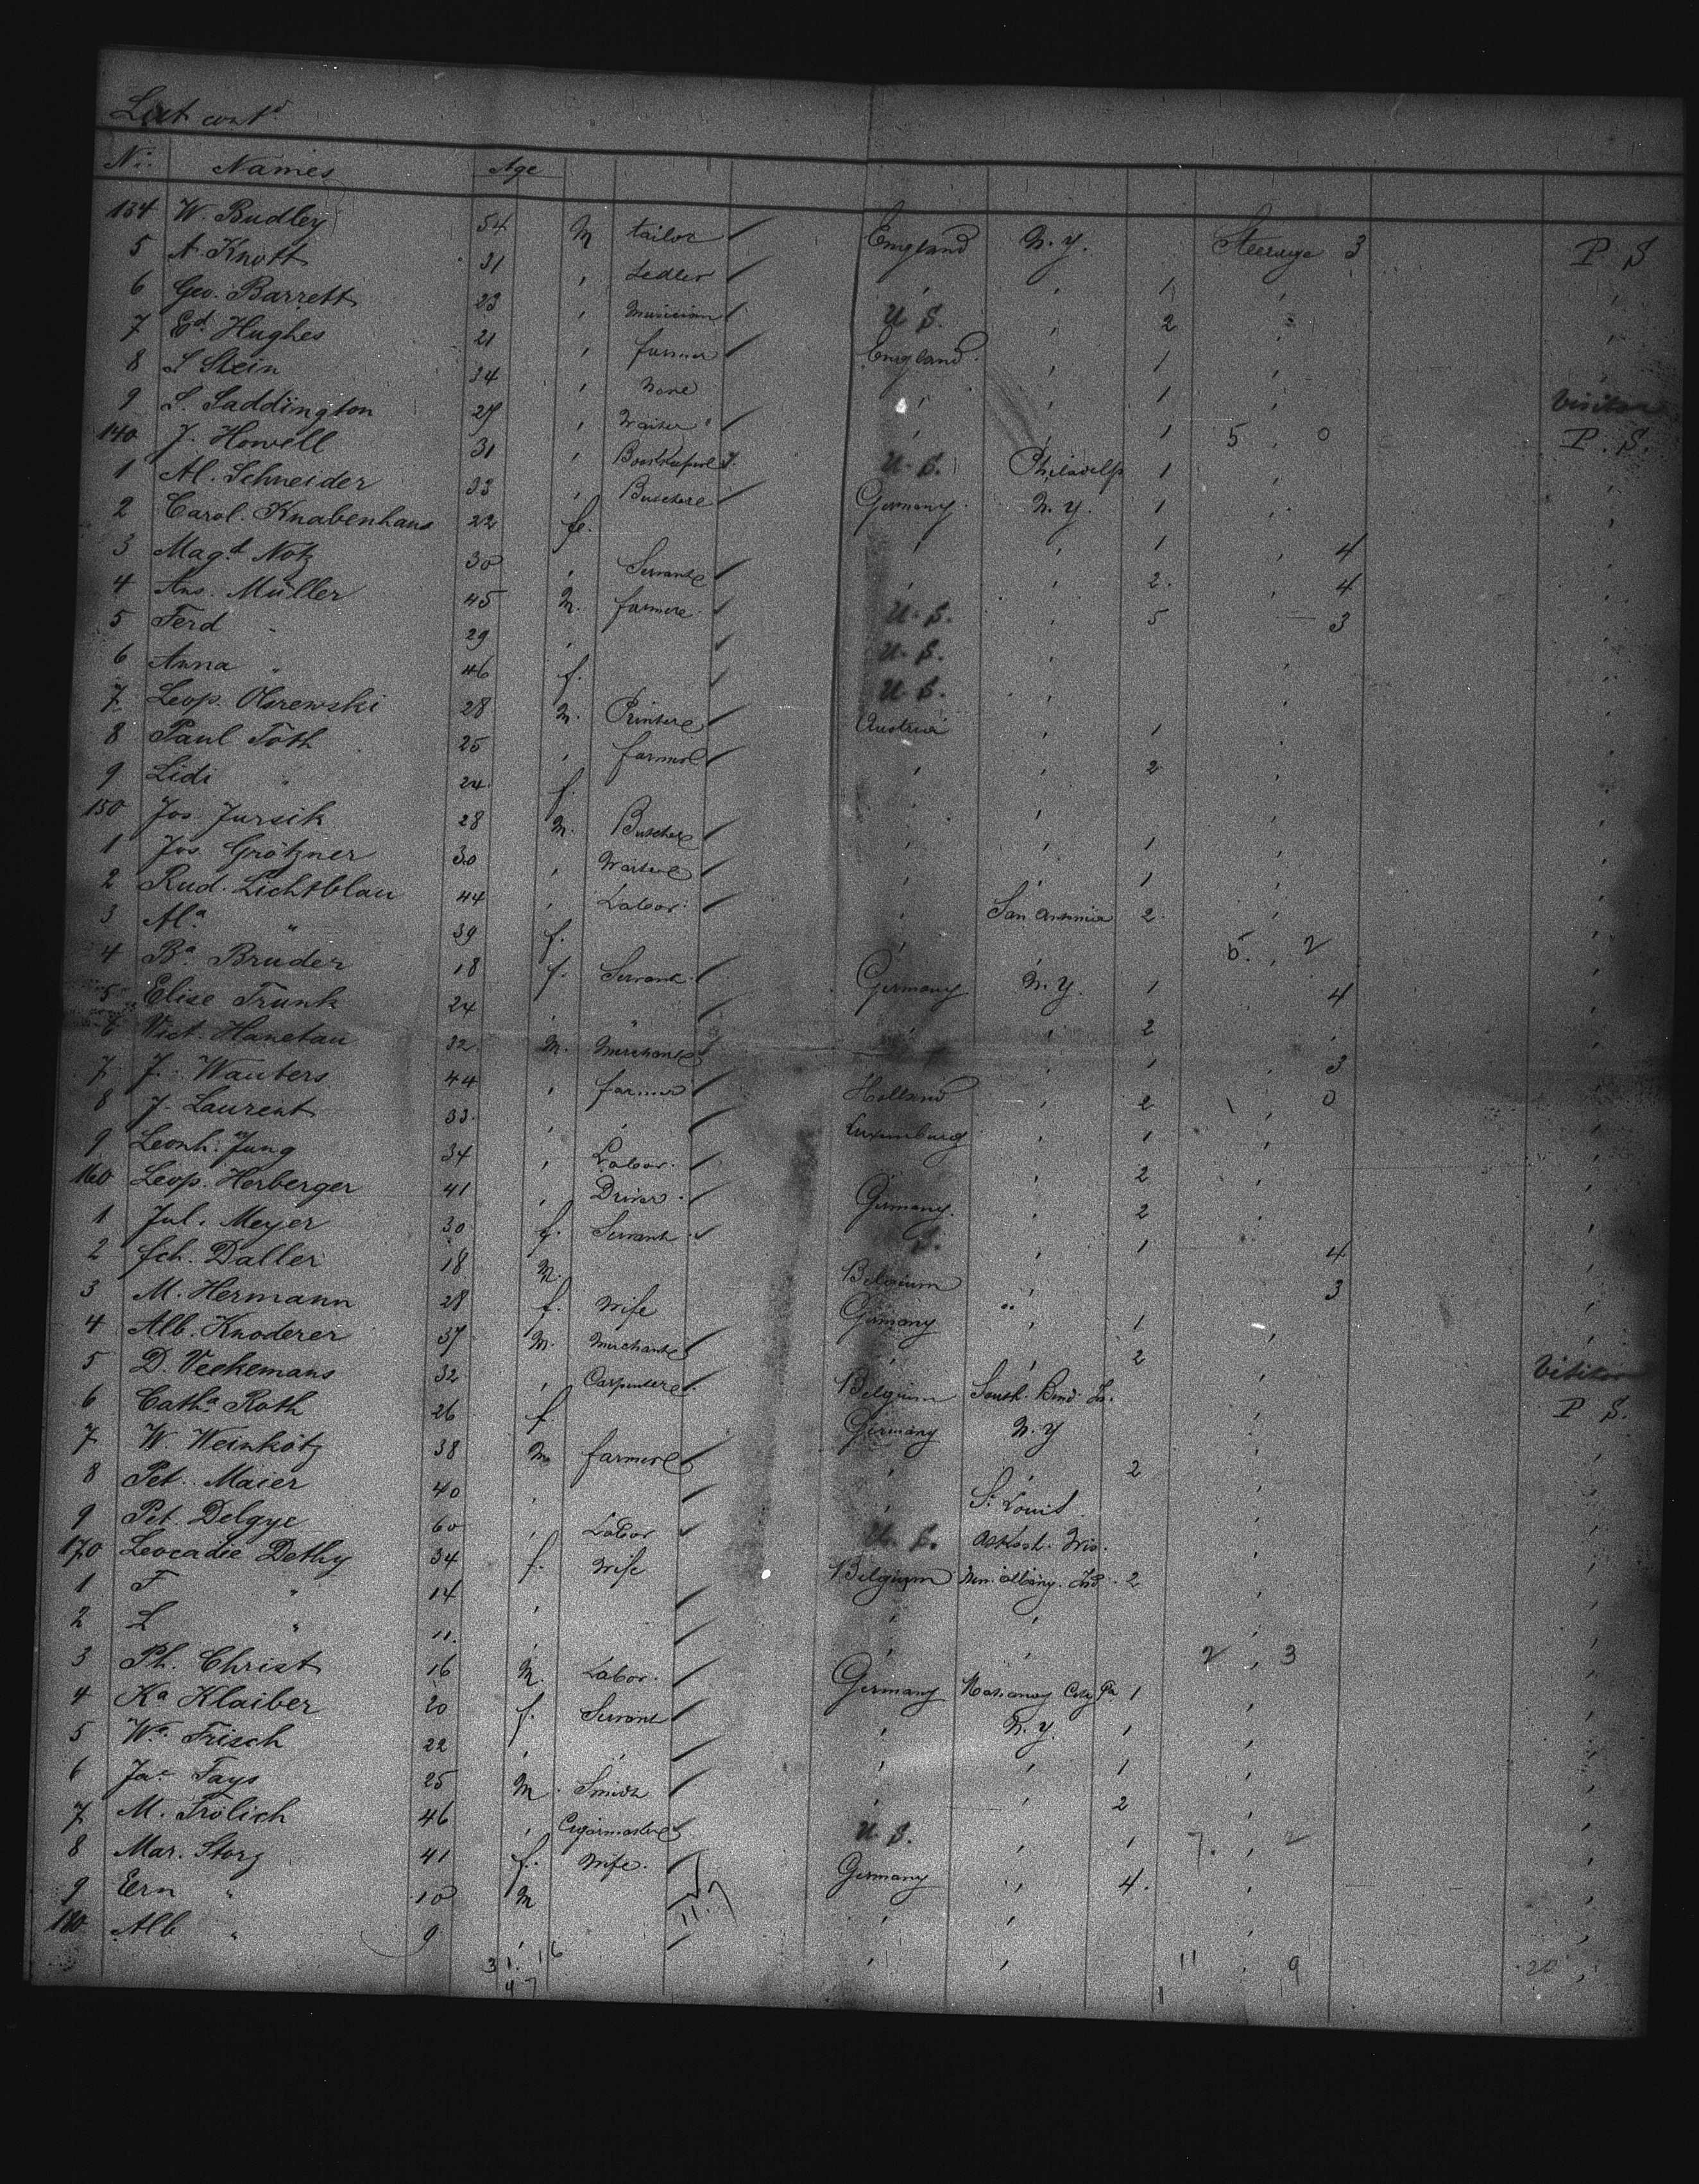 List cont<sup>d</sup>
No: Names Age
134 W. Budley 54 M tailor England N.Y. Steerage 3 P S
5 A. Knott 31 " Sedler " " 1 " "
6 Geo. Barrett 23 " Musician U S. " 2 " "
7 Ed. Hughes 21 " farmer England " 1 " "
8 S Stein 34 " None " " 1 " Visitor
9 S. Saddington 27 " Waiter " " 1 5 " 0 P. S.
140 J. Howell 31 " U. S. Philadelp 1 " "
1 Al. Schneider 33 " Butcher Germany N.Y. 1 " "
2 Carol. Knabenhans 22 fe. " " 1 " 4 "
3 Mag<sup>d</sup> Notz 30 " Servant " " 2 " 4 "
4 Ans. Müller 45 M. farmer U. S. " 5 3 "
5 Ferd " 29 " U. S. " " "
6 Anna " 46 f. U. S. " " "
7 Leop. Olsrewski 28 M. Printer Austria " 1 " "
8 Paul Toth 25 " farmer " " 2 " "
9 Lidi " 24 f. " " " "
150 Jos. Jursik 28 M. Butcher " " 1 " "
1 Jos. Grötzner 30 " Waiter " " 1 " "
2 Rud. Lichtblau 44 " Labor. " San Antonia 2 " "
3 Al<sup>a</sup> " 39 f. " 5. " 2 "
4 B<sup>a</sup> Bruder 18 f. Servant Germany N.Y. 1 4 "
5 Elise Trunk 24 " " " " 2 " "
6 Vict. Hanetau 32 M. Merchant " 1 " 3 "
7 J. Wauters 44 " farmer Holland " 2 " 0 "
8 J. Laurent 33 " " Luxemburg " 1 " "
9 Leonh. Jung 34 " Labor. " 2 "
160 Leop. Herberger 41 " Driver Germany. " 2 " "
1 Jul. Meyer 30 f. Servant " 1 4 "
2 Sch. Daller 18 M. Belgium " 3 "
3 M. Hermann 28 f. Wife Germany " 1 " "
4 Alb. Knoderer 37 M. Merchant " " 2 Visitor
5 D. Veekemans 32 " Carpenter Belgium South Bend In. " P S.
6 Cath<sup>a</sup> Roth 26 f Germany N.Y " "
7 W. Weinkötz 38 M farmer " " 2 " "
8 Pet. Maier 40 " " St. Louis " "
9 Pet. Delgye 60 " Labor U. S. Oskosh. Wis. " "
170 Leocadie Dethy 34 f. Wife Belgium New Albany. Ind. 2 " "
1 F " 14 " " " " "
2 L " 11. " " " 2 " 3 "
3 Ph. Christ 16 M. Labor. Germany Mahanoy City Pa 1 " "
4 Ka Klaiber 20 f. Servant " N.Y. 1 " "
5 W<sup>a</sup> Frisch 22 " " " " 1 " "
6 Jac. Fays 25 M Smith " " 2 " "
7 M. Frölich 46 " Cigarmaker U. S. " 1 7. " 2 "
8 Mar. Storz 41 f. Wife. Germany " 4. " "
9 Ern " 10 M " " "
180 Alb " 9 " " " 11 " 9 20 "
31. 16
47 1